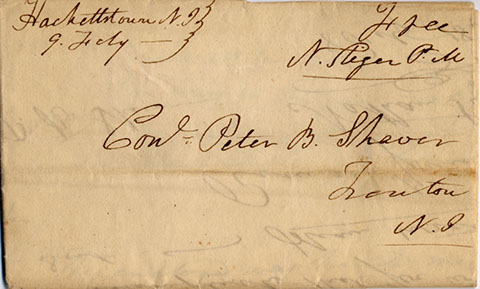 Hackettstown N.J
9 Feby
Free
N. Steger P.M
Conl. Peter B. Shaver
Trenton
N.J